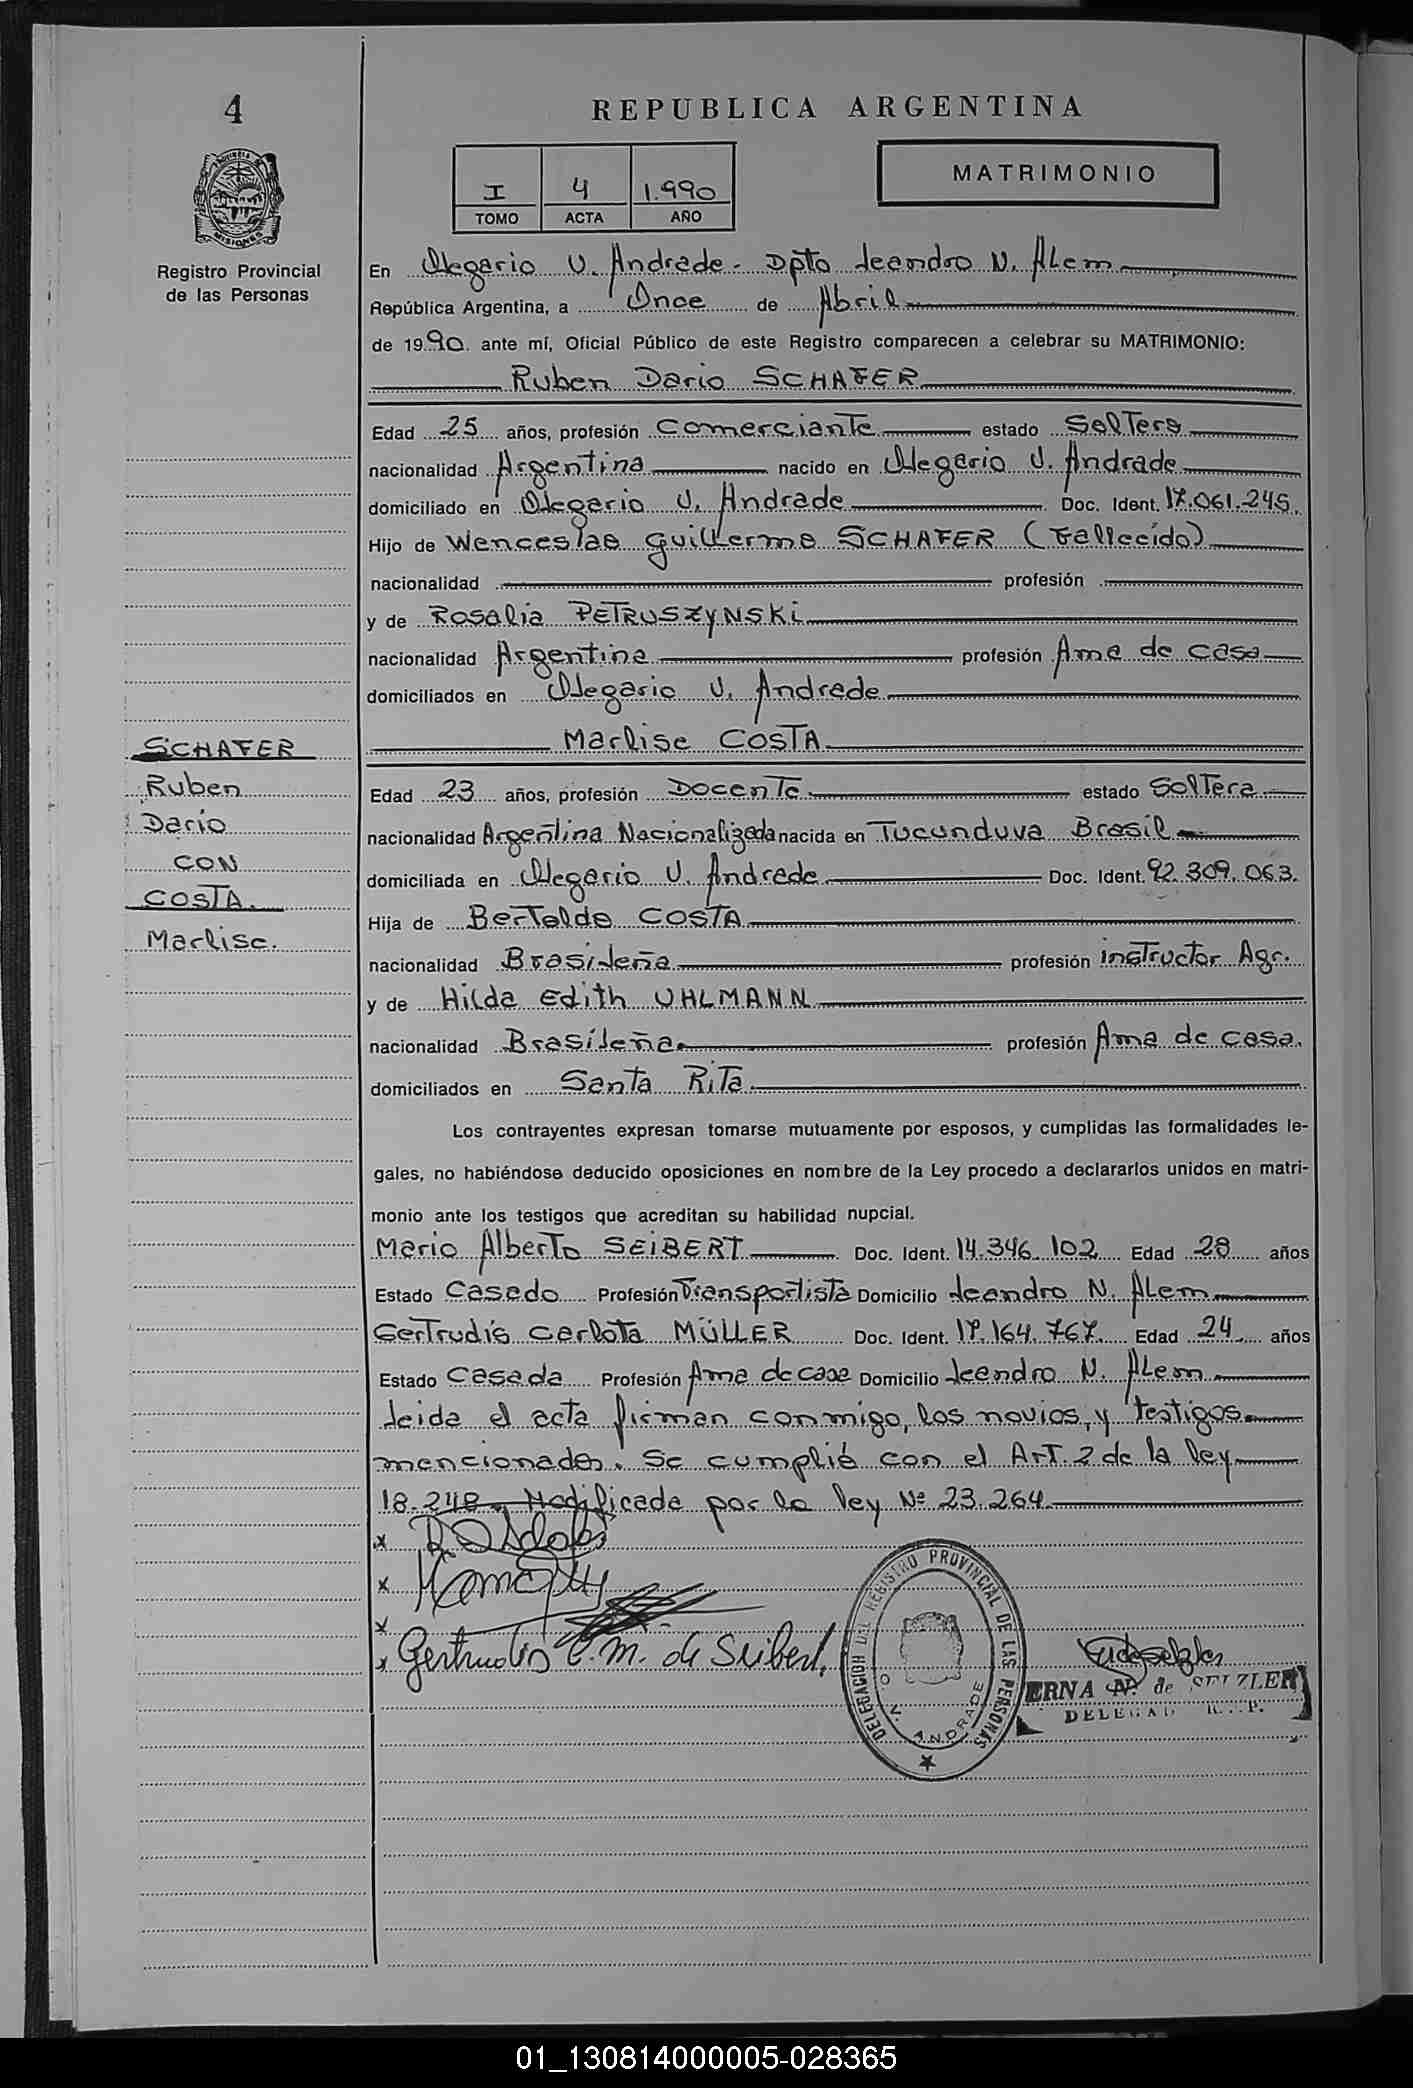 4
REPUBLICA ARGENTINA
I 4 1.990
TOMO ACTA AÑO
MATRIMONIO
Registro Provincial
de las Personas
En Olegario V. Andrade - Dpto Leandro N. Alem
República Argentina, a Once de Abril
de 1990 ante mí, Oficial Público de este Registro comparecen a celebrar su MATRIMONIO:
Ruben Dario SCHAFER
Edad 25 años, profesión Comerciante estado Soltero
nacionalidad Argentina nacido en Olegario V. Andrade
domiciliado en Olegario V. Andrade Doc. Ident. 17.061.245.
Hijo de Wenceslao Guillermo SCHAFER (Fallecido)
nacionalidad profesión
y de Rosalia PETRUSZYNSKI
nacionalidad Argentina profesión Ama de casa
domiciliados en Olegario V. Andrade
Marlise COSTA
Edad 23 años, profesión Docente estado Soltera
nacionalidad Argentina Nacionalizada nacida en Tucunduva Brasil
domiciliada en Olegario V. Andrade Doc. Ident. 92.309.063.
Hija de Bertoldo COSTA
nacionalidad Brasileña profesión instructor Agr.
y de Hilda Edith UHLMANN
nacionalidad Brasileña profesión Ama de casa.
domiciliados en Santa Rita
SCHAFER
Ruben
Dario
CON
COSTA.
Marlise.
Los contrayentes expresan tomarse mutuamente por esposos, y cumplidas las formalidades le-
gales, no habiéndose deducido oposiciones en nombre de la Ley procedo a declararlos unidos en matri-
monio ante los testigos que acreditan su habilidad nupcial.
Mario Alberto SEIBERT Doc. Ident. 14.346.102 Edad 28 años
Estado Casado Profesión Transportista Domicilio Leandro N. Alem
Gertrudis Carlota MÜLLER Doc. Ident. 17.164.767. Edad 24 años
Estado Casada Profesión Ama de casa Domicilio Leandro N. Alem
Leida el acta firman conmigo, los novios, y testigos
mencionados. Se cumplió con el Art. 2 de la ley
18.248 Modificada por la ley Nº 23.264
x
x
x
x Gertrudis C. M. de Seibert.
DELEGACION DEL REGISTRO PROVINCIAL DE LAS PERSONAS
O. V. ANDRADE
ERNA N. de SELZLER
01_130814000005-028365